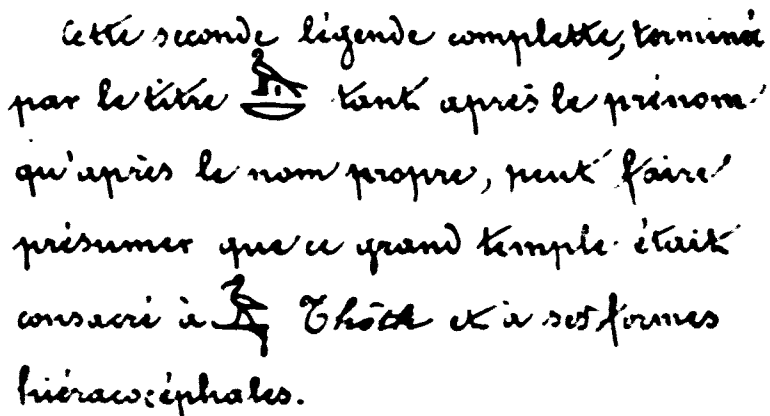 Cette seconde légende complette, terminée
par le titre 𓅃𓎟 tant après le prénom
qu'après le nom propre, peut faire
présumer que ce grand temple était
consacré à 𓅝 Thôth et à ses formes
hiéracocéphales.